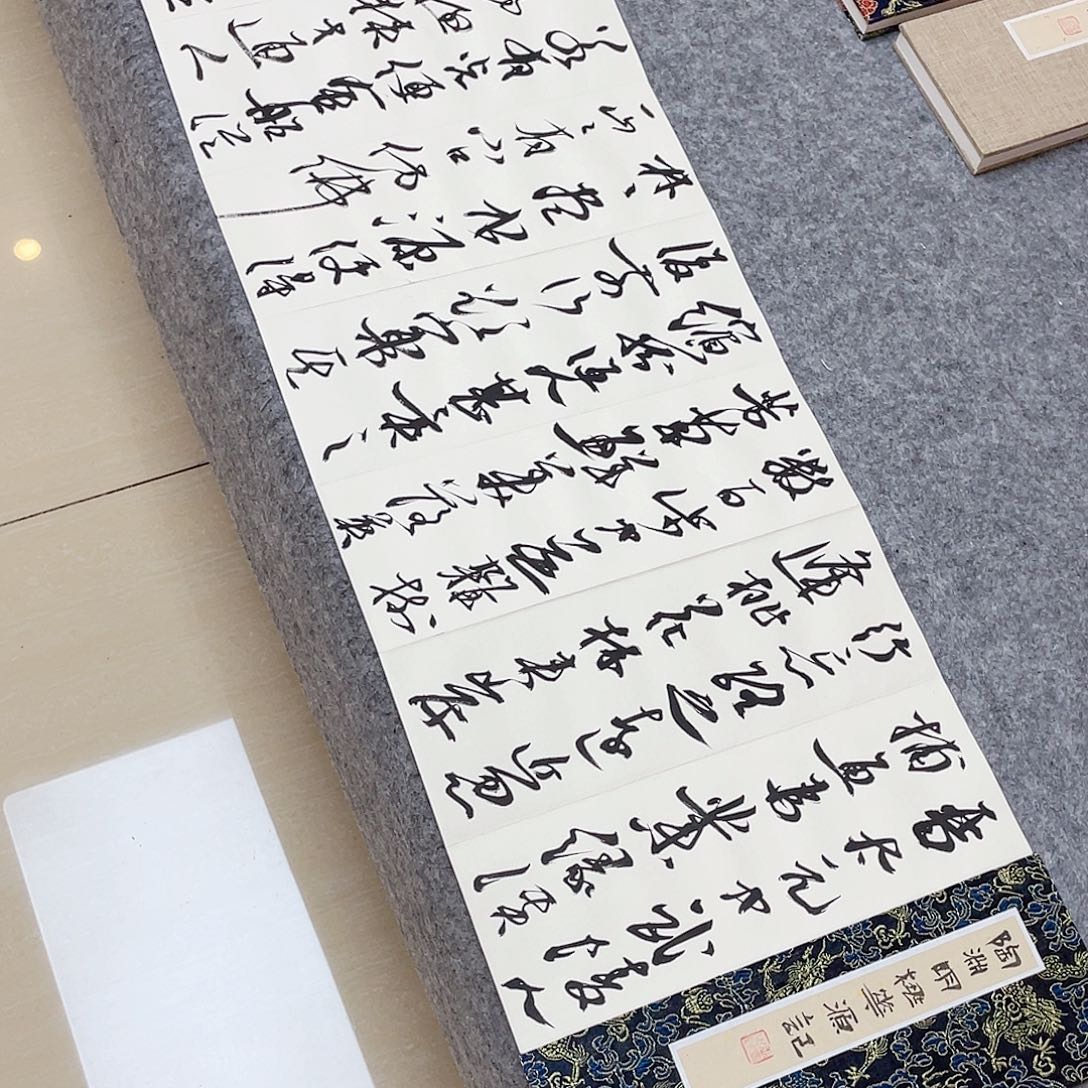 陶淵明桃華源記
晉太元中武陵人
捕魚為業緣溪
行忘路之遠近忽
逢桃花林夾岸
數百步中無雜樹
芳草鮮美落英
繽紛漁人甚異之
復前行欲窮其林
林盡水源便得
一山山有小口彷彿
若有光便舍船從
狹才通人